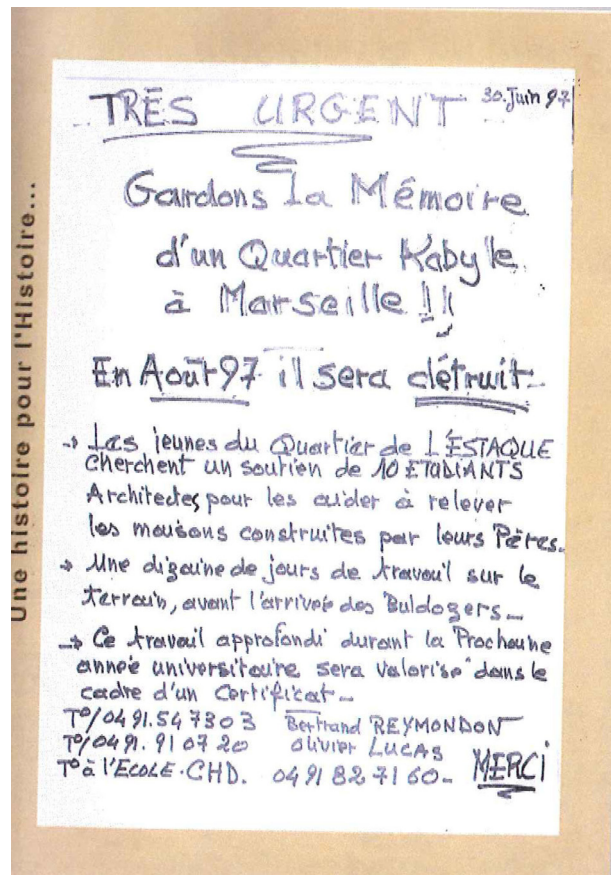 Une histoire pour l'Histoire...
30. Juin 97
TRÈS URGENT
Gardons la Mémoire
d'un Quartier Kabyle
à Marseille !!
En Août 97 il sera détruit_
→ Les jeunes du Quartier de L'ESTAQUE
cherchent un soutien de 10 ETUDIANTS
Architectes pour les aider à relever
les maisons construites par leurs Pères_
→ Une dizaine de jours de travail sur le
terrain, avant l'arrivée des Buldozers_
→ Ce travail approfondi durant la Prochaine
année universitaire sera valorisé dans le
cadre d'un Certificat_
T°/ 04 91. 54 73 03 Bertrand REYMONDON
T°/ 04 91. 91 07 20 Olivier LUCAS
T° à l'ECOLE. CHD. 04 91 82 71 60_ MERCI